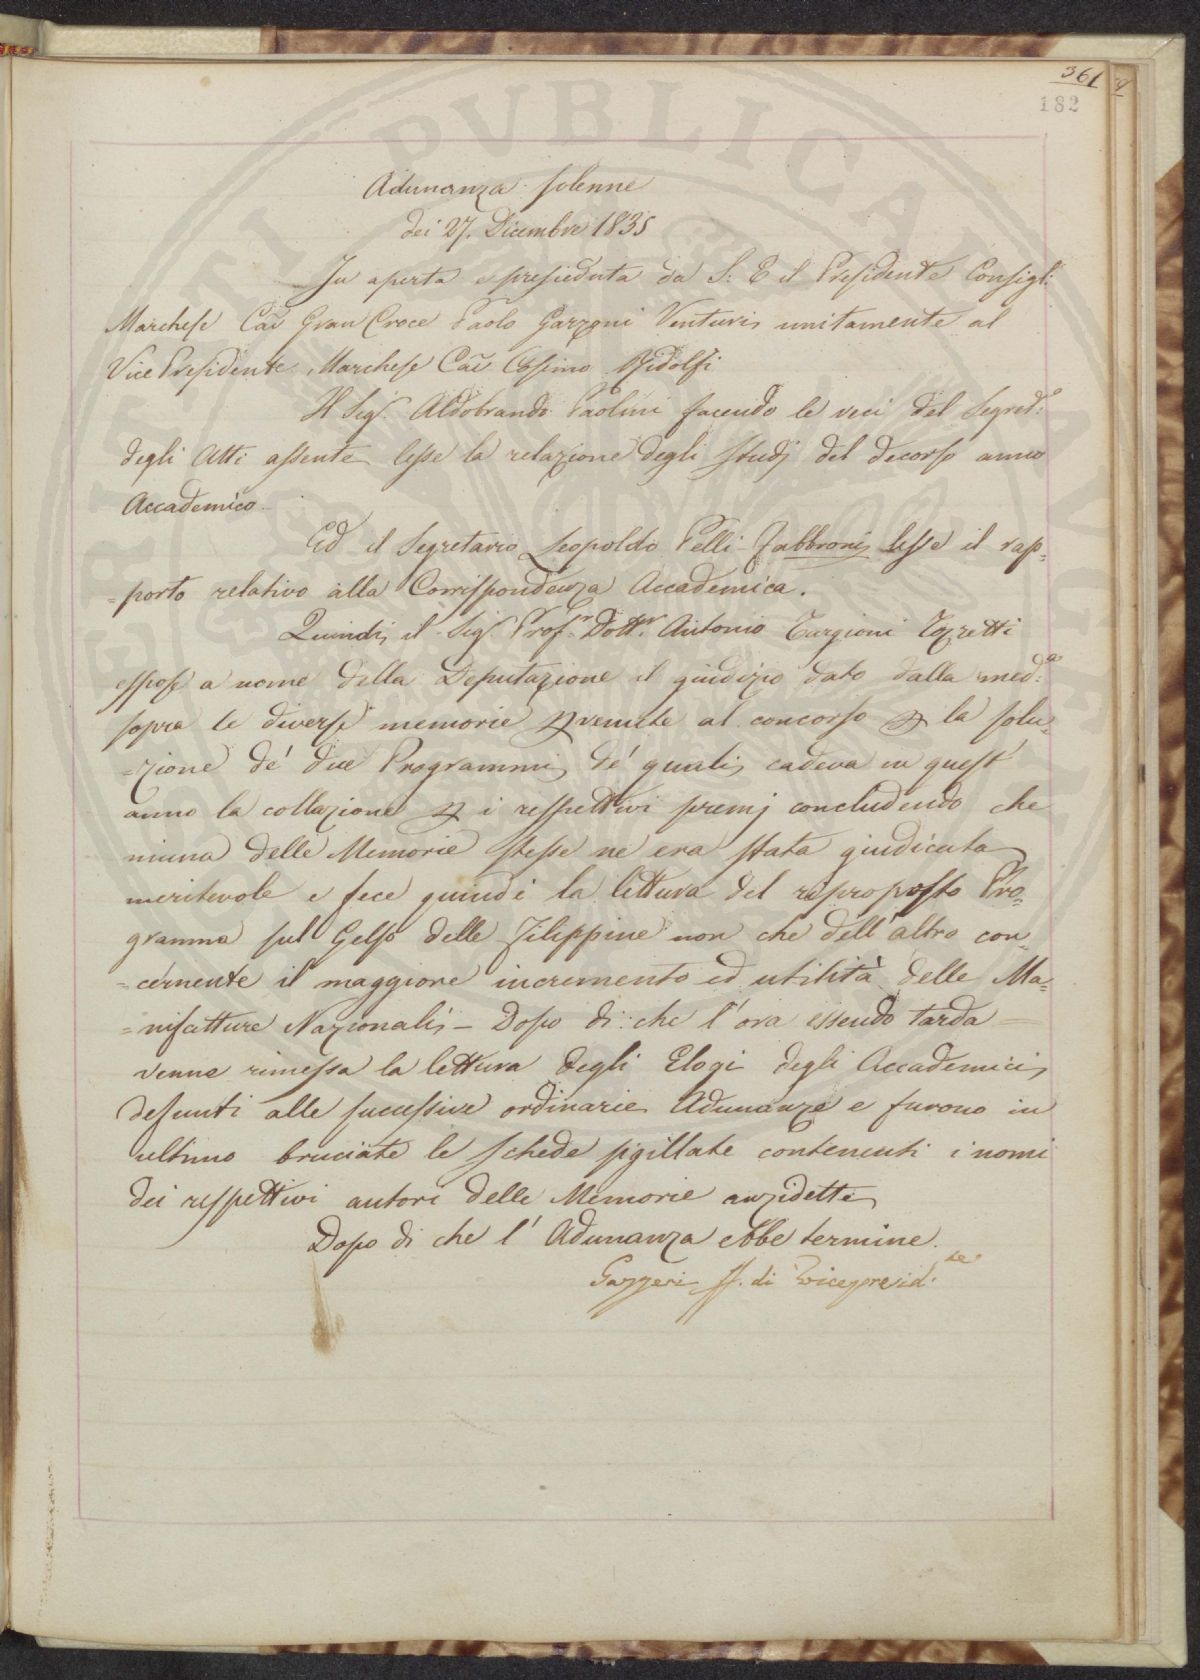 361
182
Adunanza solenne
dei 27. Dicembre 1835
Fu aperta e presieduta da S: E il Presidente Consigl:
Marchese Cav Gran Croce Paolo Garzoni Venturi, unitamente al
Vice Presidente Marchese Cav Cosimo Ridolfi
Il Sigr. Aldobrando Paolini facendo le veci del Segreto:
degli Atti assente, lesse la relazione degli studj del decorso anno
Accademico
Ed il Segretario Leopoldo Pelli-Fabbroni lesse il rap=
=porto relativo alla Corrispondenza Accademica.
Quindi, il Sigr. Profr. Dottr. Antonio Targioni Tozzetti
espose a nome della Deputazione il giudizio dato dalla meda:
sopra le diverse memorie pervenute al concorso per la solu=
=zione de' due Programmi, de' quali, cadeva in quest'
anno la collazione per i respettivi premj concludendo che
niuna delle Memorie stesse ne era stata giudicata
meritevole e fece quindi la lettura del riproposto Pro=
gramma sul Gelso delle Filippine non che dell'altro con=
=cernente il maggiore incremento ed utilità delle Ma=
=nifatture Nazionali, - Dopo di che l'ora essendo tarda
venne rimessa la lettura degli Elogi degli Accademici,
defunti alle successive ordinarie Adunanze e furono in
ultimo bruciate le schede sigillate contenenti i nomi
dei respettivi autori delle Memorie anzidette
Dopo di che l'Adunanza ebbe termine.
Gazzeri ff. di Vicepresidte.